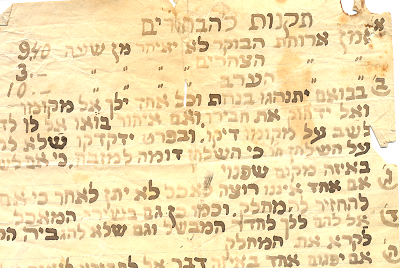 תקנות להבחורים
א) זמן ארוחת הבוקר לא יאיחר מן שעה 9.40
" " הצהרים " " " 3.—
" " הערב " " " 10.—
ב) בבואם יתנהגו בנחת וכל אחד ילך אל מקומו
ואל ידחוף את חבירו, ואם איחור בואו אל לו לד
לשב על מקומו דיקו. ובפרט ידקדקו שלא
על השלחן כי השלחן דומה למזבח. כי אם
באיזה מקום שפנוי
ג) אם אחד איננו רוצה לאכל לא יתן לאחר כי אם
להחזיר להמחלק. וכמו כן גם בשיורי המאכל
ד) אל להם לילך לחדר המבשל וגם שלא להגביה
לקרא את המחלק
ה) אם יפגום אחד באיזה דבר אל